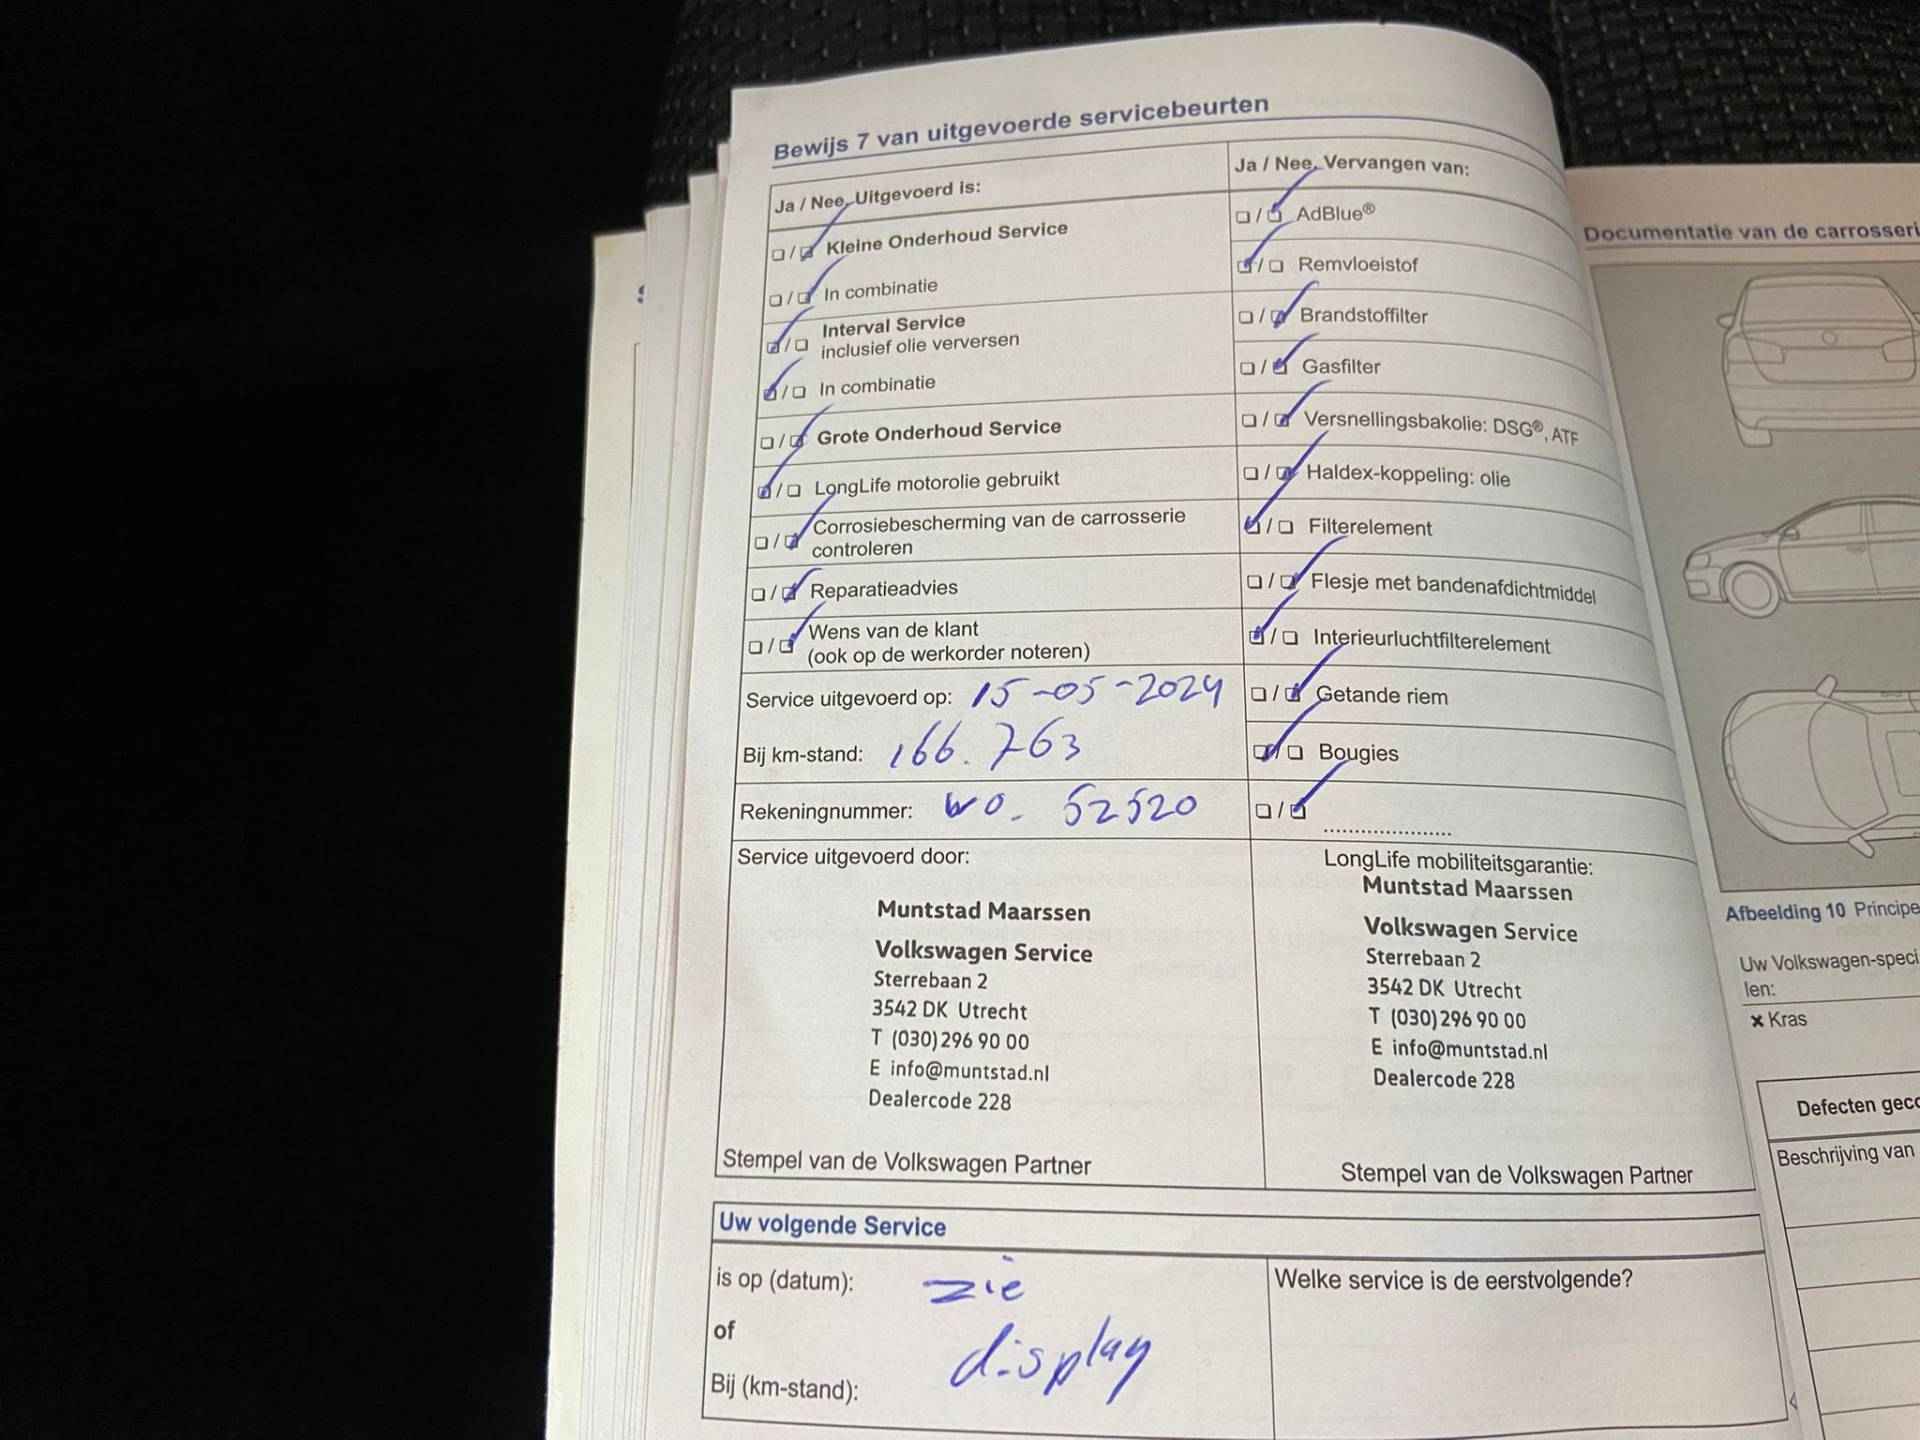 Bewijs 7 van uitgevoerde servicebeurten
Ja / Nee, Uitgevoerd is:
☐ / ☑ Kleine Onderhoud Service
☐ / ☑ In combinatie
☑ / ☐ Interval Service
inclusief olie verversen
☑ / ☐ In combinatie
☐ / ☑ Grote Onderhoud Service
☑ / ☐ LongLife motorolie gebruikt
☐ / ☑ Corrosiebescherming van de carrosserie
controleren
☐ / ☑ Reparatieadvies
☐ / ☑ Wens van de klant
(ook op de werkorder noteren)
Service uitgevoerd op: 15-05-2024
Bij km-stand: 166.763
Rekeningnummer: wo. 52520
Ja / Nee, Vervangen van:
☐ / ☑ AdBlue®
☑ / ☐ Remvloeistof
☐ / ☑ Brandstoffilter
☐ / ☑ Gasfilter
☐ / ☑ Versnellingsbakolie: DSG®, ATF
☐ / ☑ Haldex-koppeling: olie
☑ / ☐ Filterelement
☐ / ☑ Flesje met bandenafdichtmiddel
☑ / ☐ Interieurluchtfilterelement
☐ / ☑ Getande riem
☑ / ☐ Bougies
☐ / ☑ ......................
Service uitgevoerd door:
Muntstad Maarssen
Volkswagen Service
Sterrebaan 2
3542 DK Utrecht
T (030) 296 90 00
E info@muntstad.nl
Dealercode 228
Stempel van de Volkswagen Partner
LongLife mobiliteitsgarantie:
Muntstad Maarssen
Volkswagen Service
Sterrebaan 2
3542 DK Utrecht
T (030) 296 90 00
E info@muntstad.nl
Dealercode 228
Stempel van de Volkswagen Partner
Uw volgende Service
is op (datum): zie
of
Bij (km-stand): display
Welke service is de eerstvolgende?
Documentatie van de carrosseri
Afbeelding 10 Principe
Uw Volkswagen-speci
len:
× Kras
Defecten geco
Beschrijving van